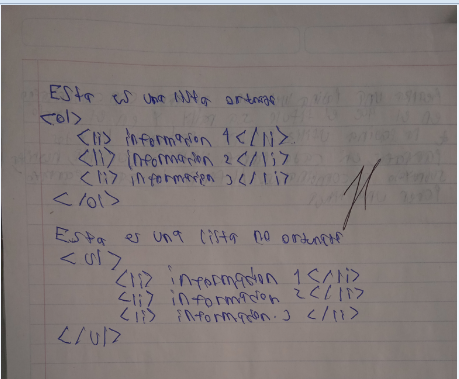 Esta es una lista ordenada
<ol>
<li> informacion 1 </li>
<li> informacion 2 </li>
<li> informacion 3 </li>
</ol>
Esta es una lista no ordenada
<ul>
<li> informacion 1 </li>
<li> informacion 2 </li>
<li> informacion. 3 </li>
</ul>